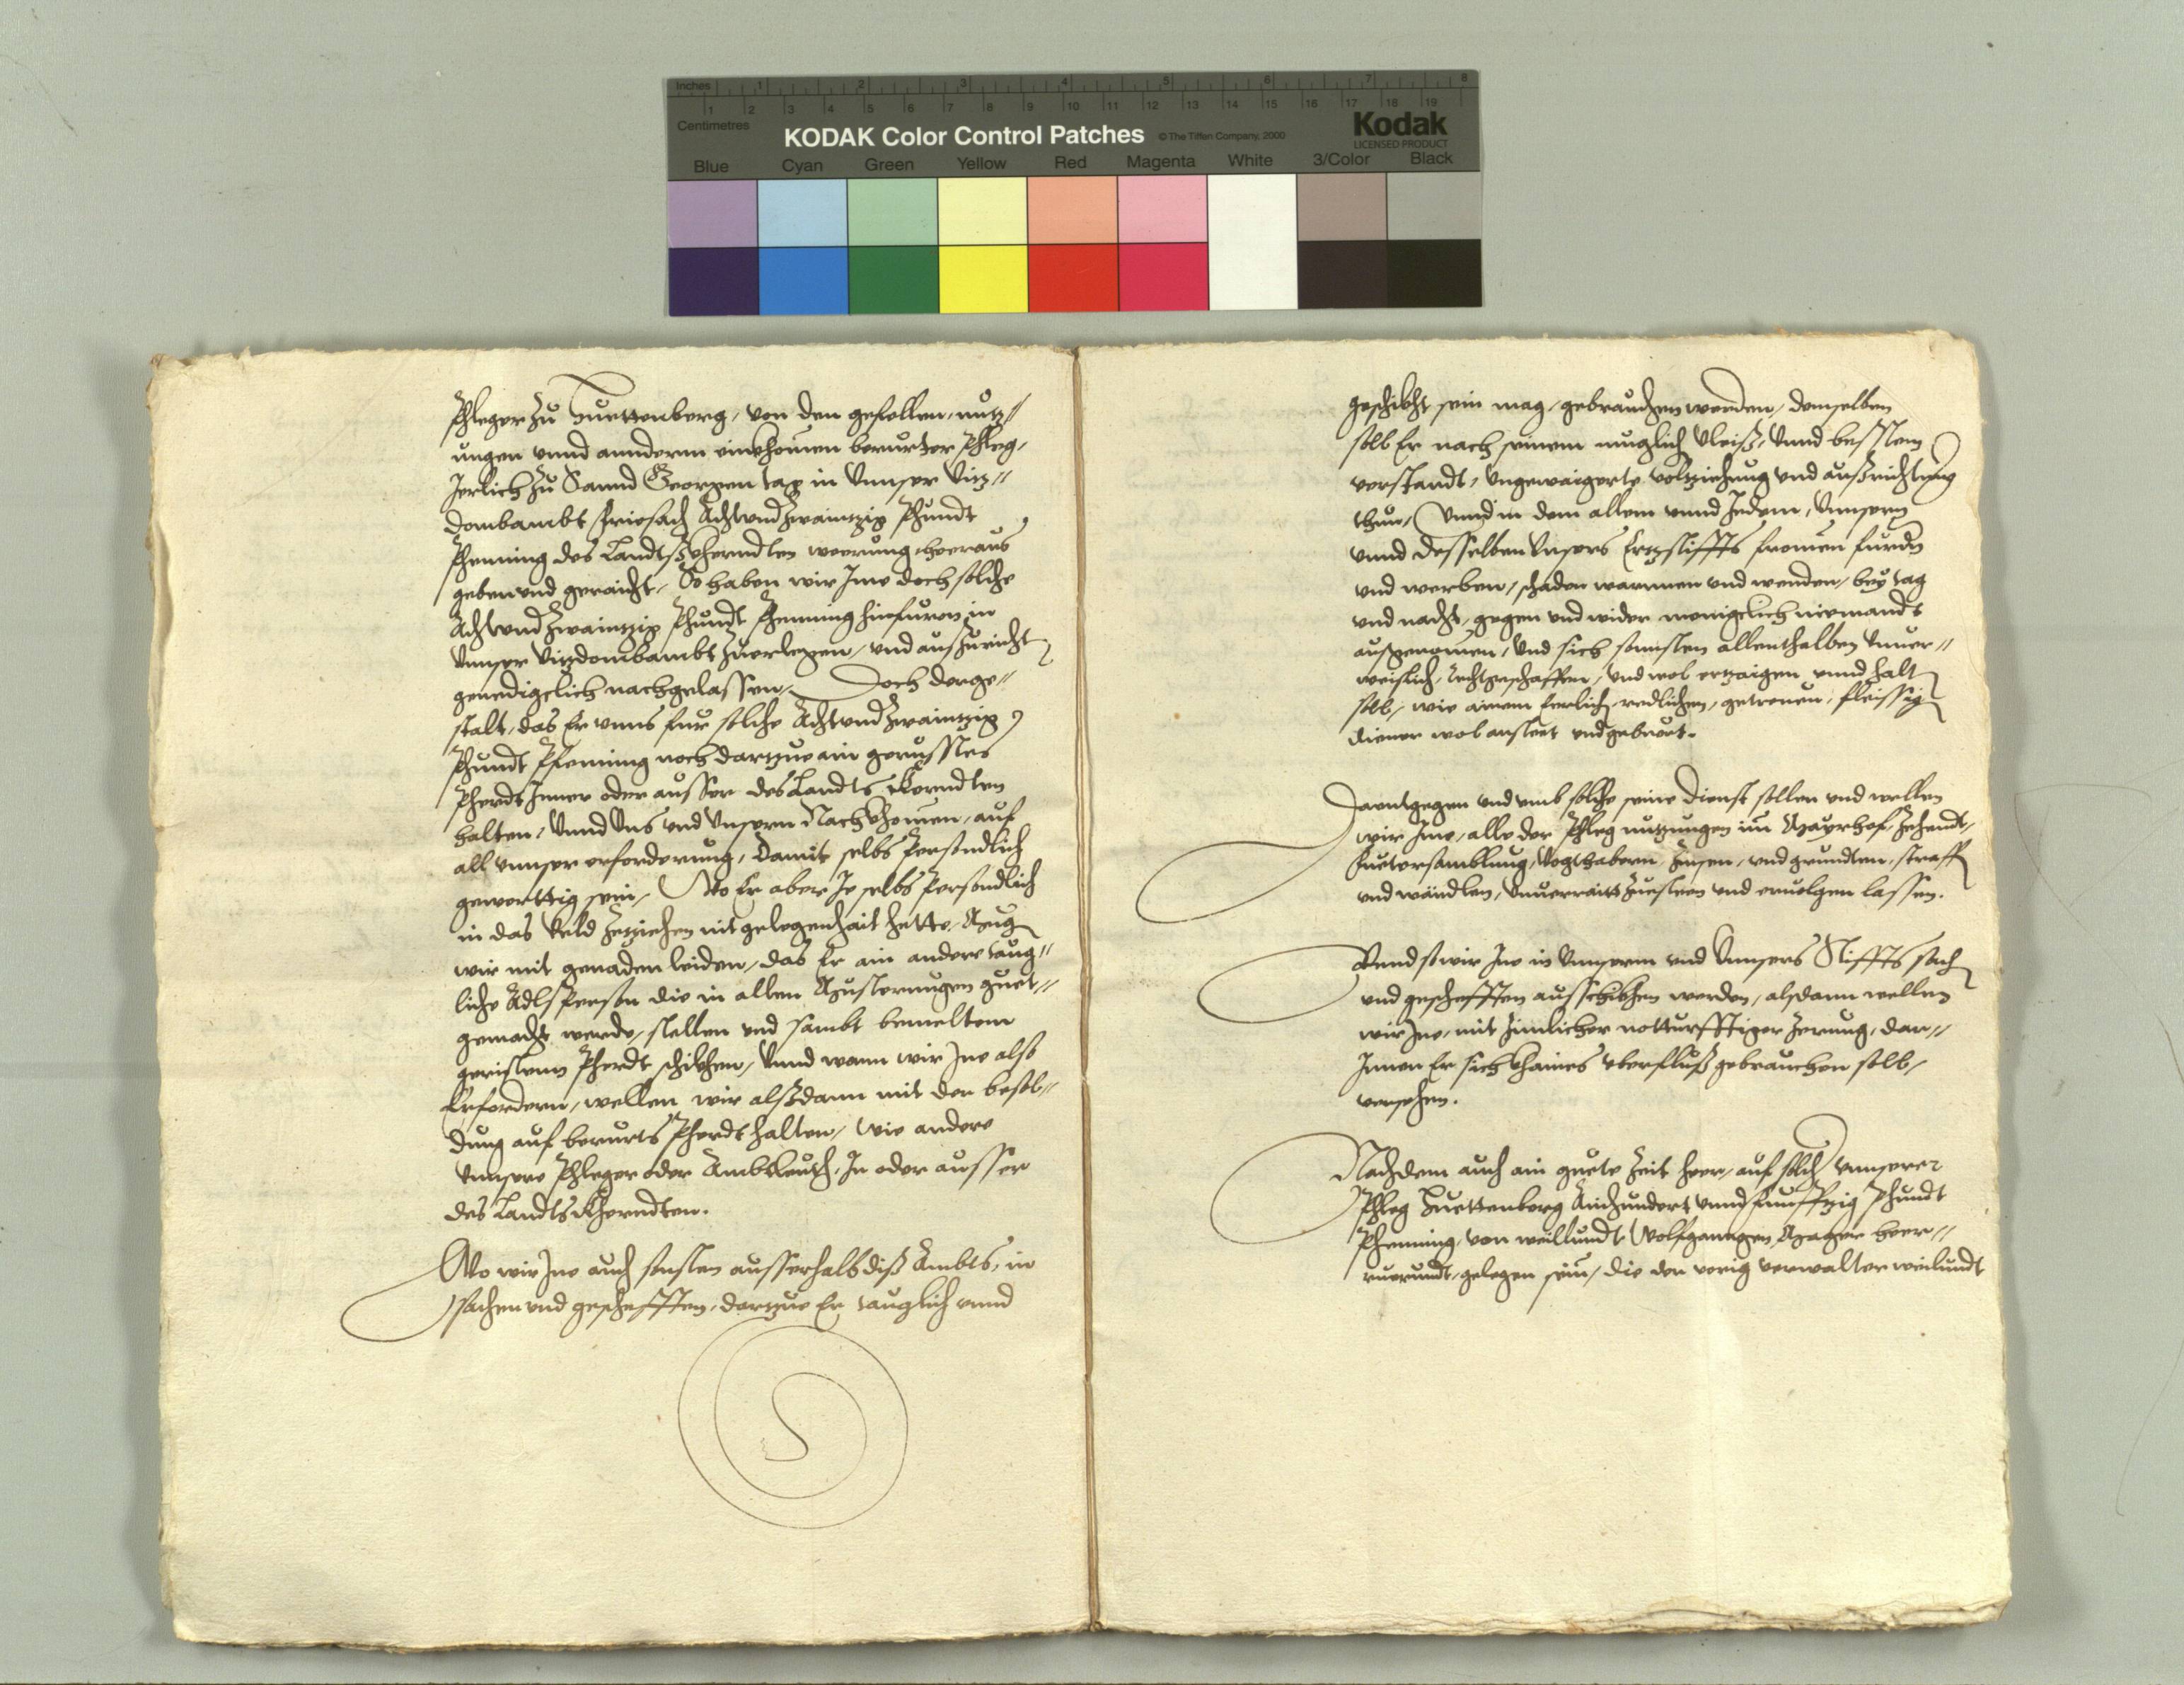 Inches 1 2 3 4 5 6 7 8
1 2 3 4 5 6 7 8 9 10 11 12 13 14 15 16 17 18 19
Centimetres
KODAK Color Control Patches © The Tiffen Company, 2000 Kodak
LICENSED PRODUCT
Blue Cyan Green Yellow Red Magenta White 3/Color Black
Phleger zu Huettenberg, von den gefellen, nutz//
ungen vnnd anndern einkhomen berurter Phleg,
Jerlich zu Sannd Georgen tag in Vnnser Vitz//
dombambt Friesach Achtundzwaintzig Phundt
Phenning des Landtß Khernndten werung heraus
geben und geraicht, So haben wir Ime doch solche
Achtundzwaintzig Phundt Phenning hinfuron in
Vnnser Vitzdombambt zuerlegen, und auszuricht
genedigclich nachgelassen, Doch derge//
stalt, das Er vnns fur solche Achtundzwaintzig
Phundt Phenning noch dartzue ain gerusstes
Pherdt Inner oder ausser des Landts Kherndten
halten, Vnnd Vns und Vnsern Nachkhomen, auf
all vnnser erforderung, damit selbs Persondlich
gewerttig sein, Wo Er aber Je selbs Persondlich
in das Veld zeziehen nit gelegenhait hette, Mug
wir mit genaden leiden, das Er ain andere taug//
liche Adls Person die in allen Musterungen guet//
gemacht werde, stellen und sambt bemeltem
geristem Pherdt schikhen, Vnnd wann wir Ine also
Erfordern, wellen wir alßdann mit der besol//
dung auf berurts Pherdt halten, wie andere
Vnnsere Phleger oder Ambtleuth, In oder ausser
des Landts Kherndten.
Wo wir Ine auch sonsten ausserhalb diß Ambts, in
sachen und geschefften, dartzue Er tauglich vnnd
geschikht sein mag, gebrauchen werden, demselben
soll Er nach seinem muglich Vleiß, Vnnd besstem
verstandt, Ungewaigerte voltziehung und außrichtung
thun, Vnnd in dem allem vnnd Jedem, Vnnsern
vnnd desselben Vnsers Ertzstiffts fromen furdn
und werben, schaden warnnen und wenden, bey tag
und nacht, gegen und wider menigclich niemandt
ausgenomen, Und sich sonnsten allenthalben Vnuer//
weislich, Rechtgeschaffen, Und wol ertzaigen vnnd halt
soll, wie ainem Eerlich, redlichen, getreuen, fleissig
diener wol ansteet und gebuert.
Daentgegen und umb solche seine Dienst sollen und wellen
wir Ime, alle der Phleg nutzungen im Mayrhof, Zehendt,
Fuetersamblung, Vogthabern, Zinsen, und grundten, straff
und wandlen, Vnuerraitt zuesteen und eruolgen lassen.
Vnnd so wir Ine in Vnnserm und Vnnsers Stiffts sach
und geschefften ausschikhen werden, alsdann wellen
wir Ine, mit zimlicher notturfftiger Zerung, dar//
Innen Er sich khaines vberfluß gebrauchen soll,
versehen.
Nachdem auch ain guete Zeit heer, auf solch vnnserer
Phleg Huettenberg Ainhundert vnnd Funffzig Phundt
Phenning, von weillundt Wolfganngen Mager heer//
ruerundt, gelegen sein, die der vorig verwalter weilundt